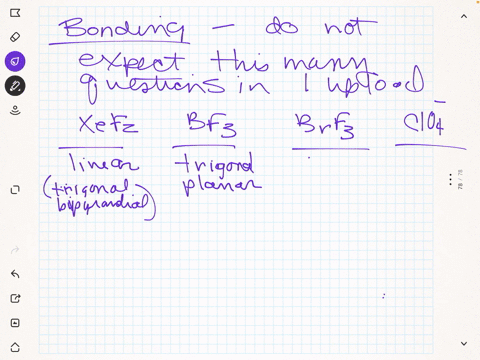 Bonding – do not
expect this many
questions in 1 upload
XeF2 BF3 BrF3 ClO4⁻
linear trigonal
(trigonal planar
bipyramidial)
78 / 78